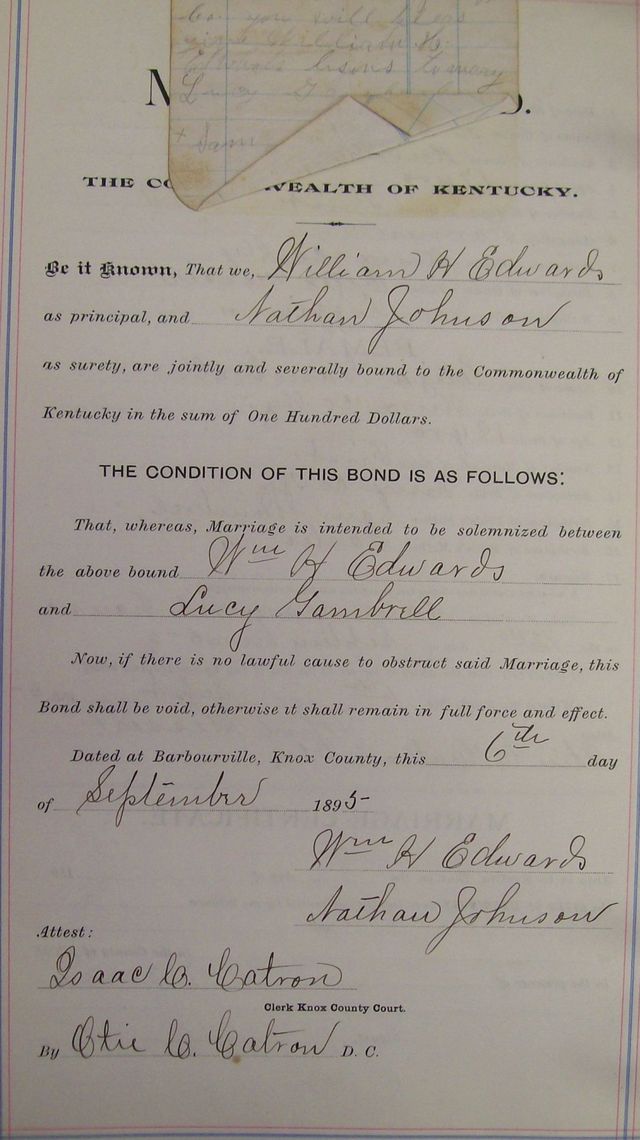 you will
William H
Edwards
Lucy
M D.
THE CO WEALTH OF KENTUCKY.
Be it Known, That we, William H Edwards
as principal, and Nathan Johnson
as surety, are jointly and severally bound to the Commonwealth of
Kentucky in the sum of One Hundred Dollars.
THE CONDITION OF THIS BOND IS AS FOLLOWS:
That, whereas, Marriage is intended to be solemnized between
the above bound Wm H Edwards
and Lucy Gambrell
Now, if there is no lawful cause to obstruct said Marriage, this
Bond shall be void, otherwise it shall remain in full force and effect.
Dated at Barbourville, Knox County, this 6th day
of September 1895
Wm H Edwards
Nathan Johnson
Attest:
Isaac C. Catron
Clerk Knox County Court.
By Otie C. Catron D. C.